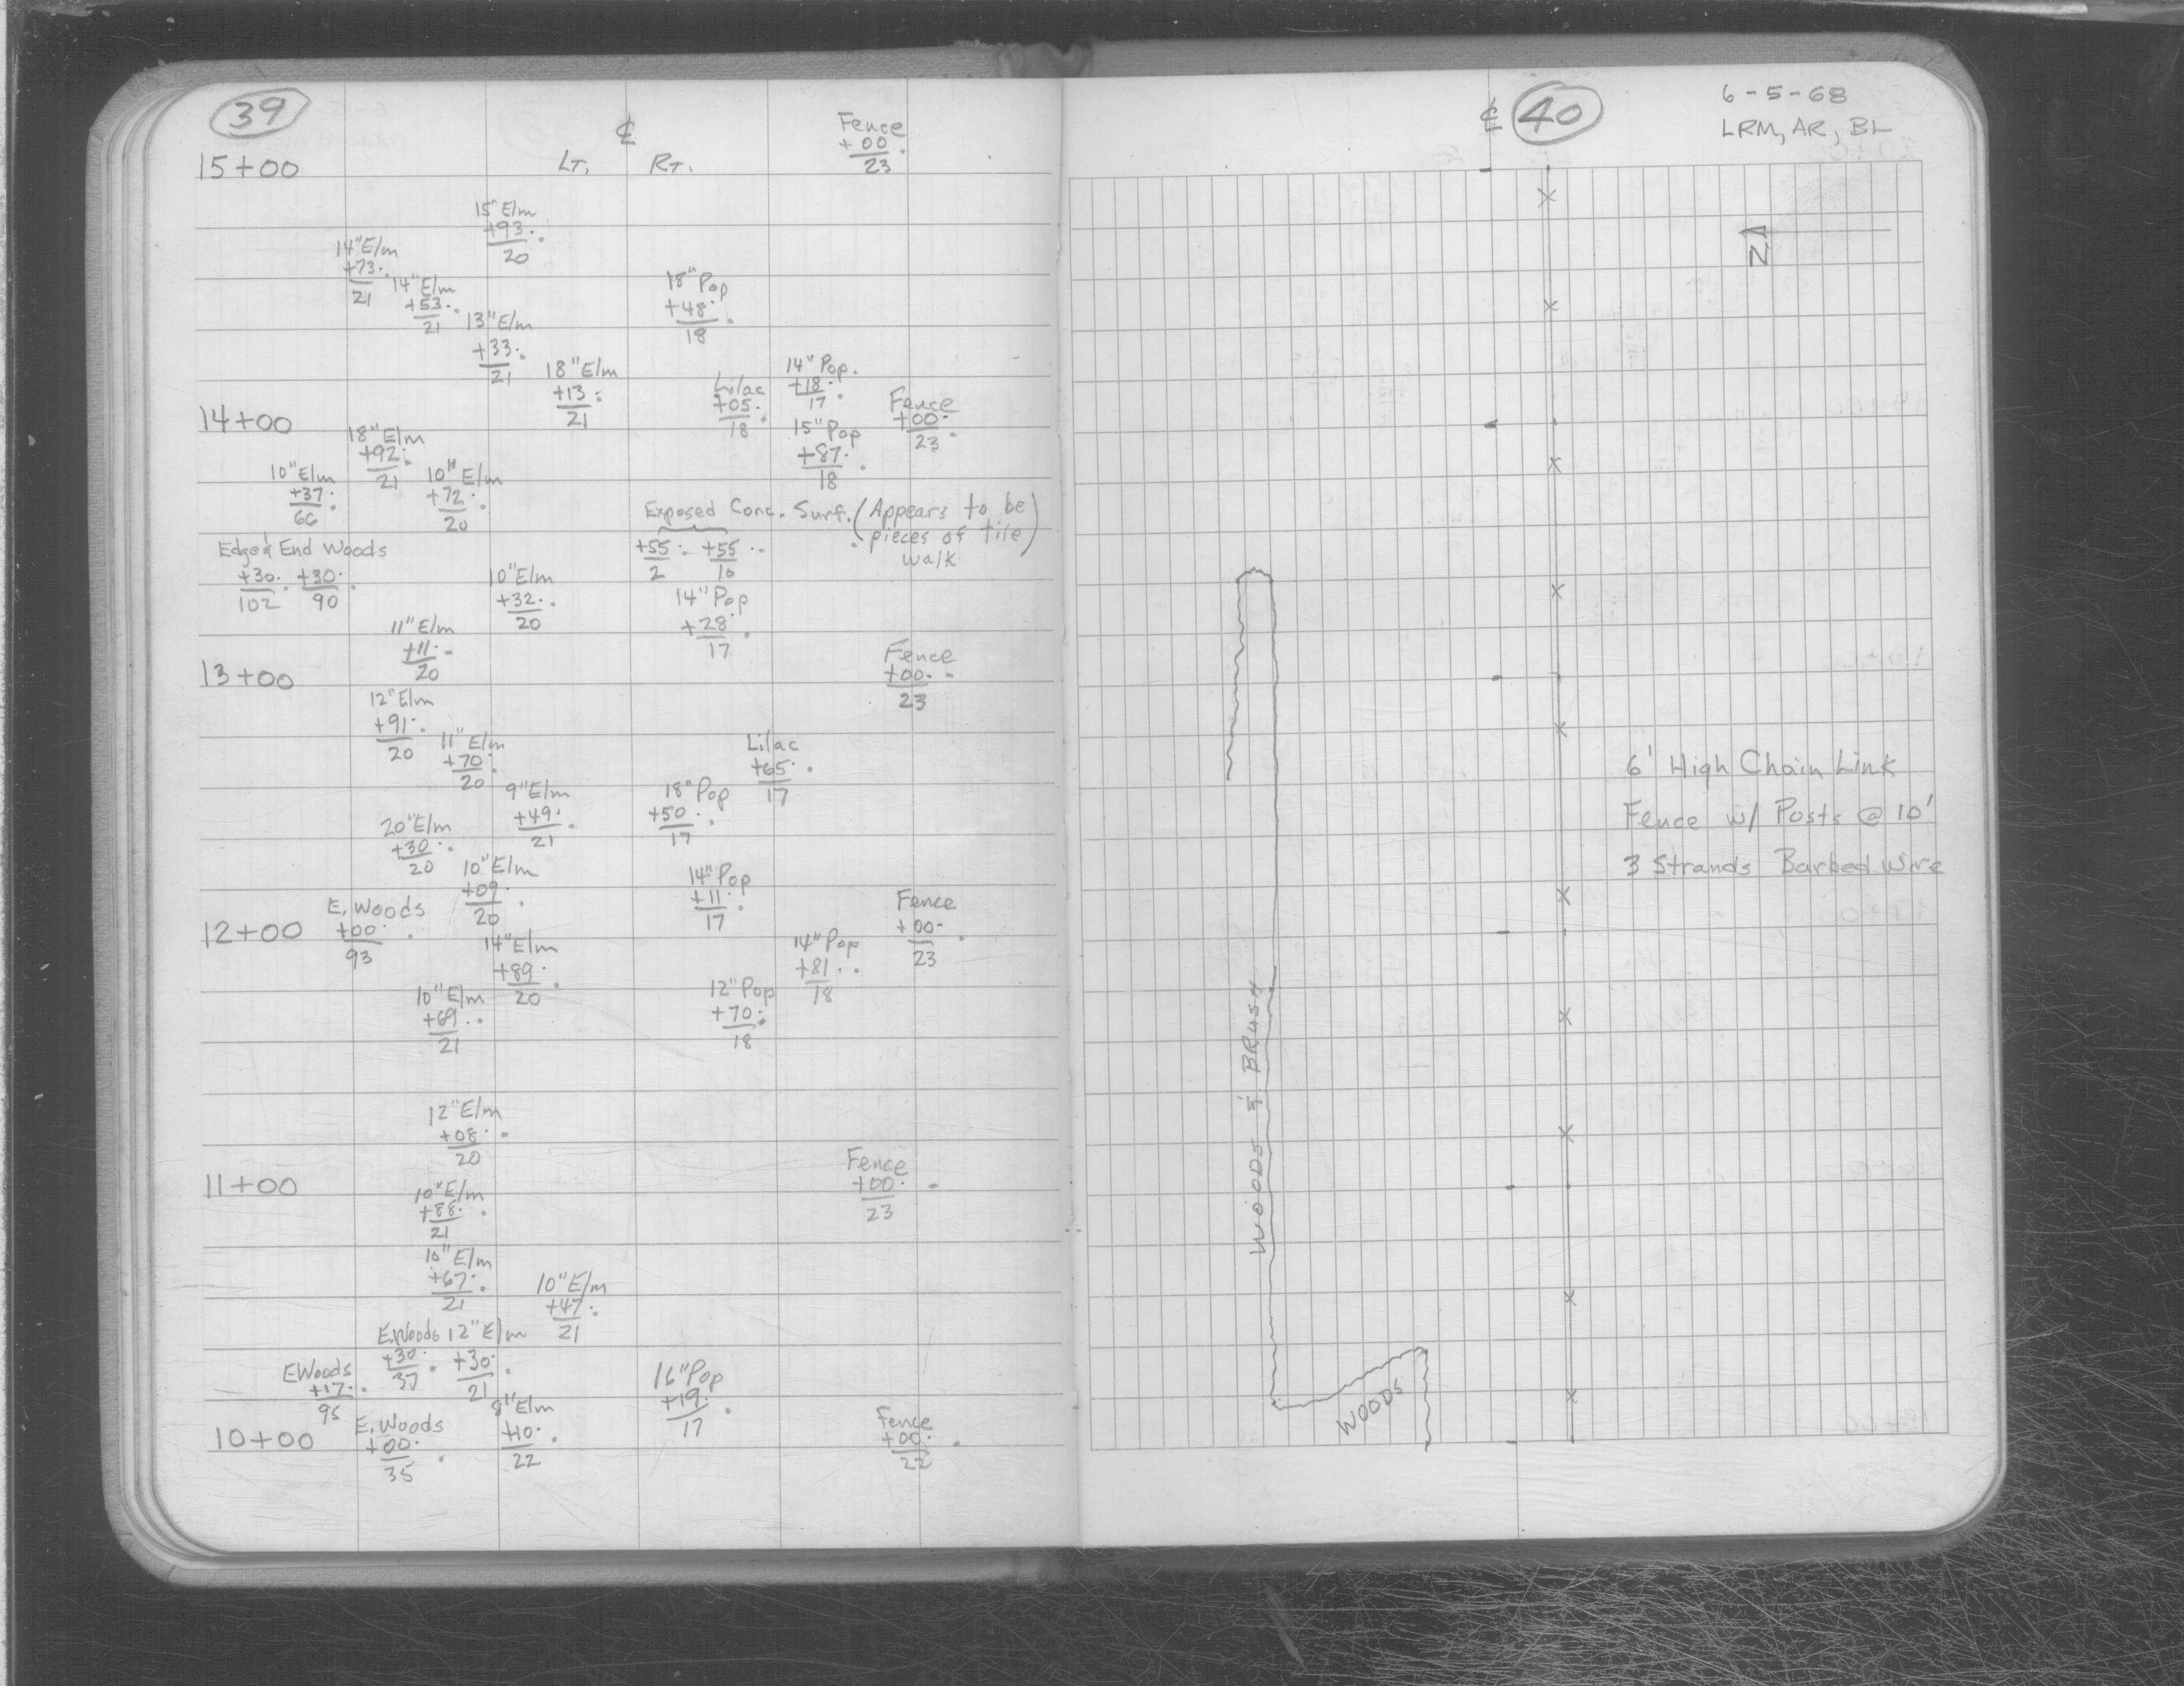 39
℄
Fence
+00
23
15+00
LT.
RT.
15" Elm
+93
20
14" Elm
+73
21
14" Elm
+53
21
18" Pop
+48
18
13" Elm
+33
21
18" Elm
+13
21
14" Pop.
+18
17
Lilac
+05
18
Fence
+00
23
14+00
18" Elm
+92
21
15" Pop
+87
18
10" Elm
+37
66
10" Elm
+72
20
Exposed Conc. Surf. (Appears to be
pieces of tile)
walk
+55
2
+55
10
Edge & End Woods
+30
102
+30
90
10" Elm
+32
20
14" Pop
+28
17
11" Elm
+11
20
Fence
+00
23
13+00
12" Elm
+91
20
11" Elm
+70
20
Lilac
+65
17
9" Elm
+49
21
18" Pop
+50
17
20" Elm
+30
20
10" Elm
+09
20
14" Pop
+11
17
Fence
+00
23
12+00
E. Woods
+00
93
14" Elm
+89
20
14" Pop
+81
18
10" Elm
+69
21
12" Pop
+70
18
12" Elm
+08
20
Fence
+00
23
11+00
10" Elm
+88
21
10" Elm
+67
21
10" Elm
+47
21
E. Woods
+30
37
12" Elm
+30
21
E Woods
+17
95
16" Pop
+19
17
8" Elm
+10
22
Fence
+00
22
10+00
E. Woods
+00
35
℄
40
6-5-68
LRM, AR, BL
N
6' High Chain Link
Fence w/ Posts @ 10'
3 Strands Barbed Wire
WOODS & BRUSH
WOODS